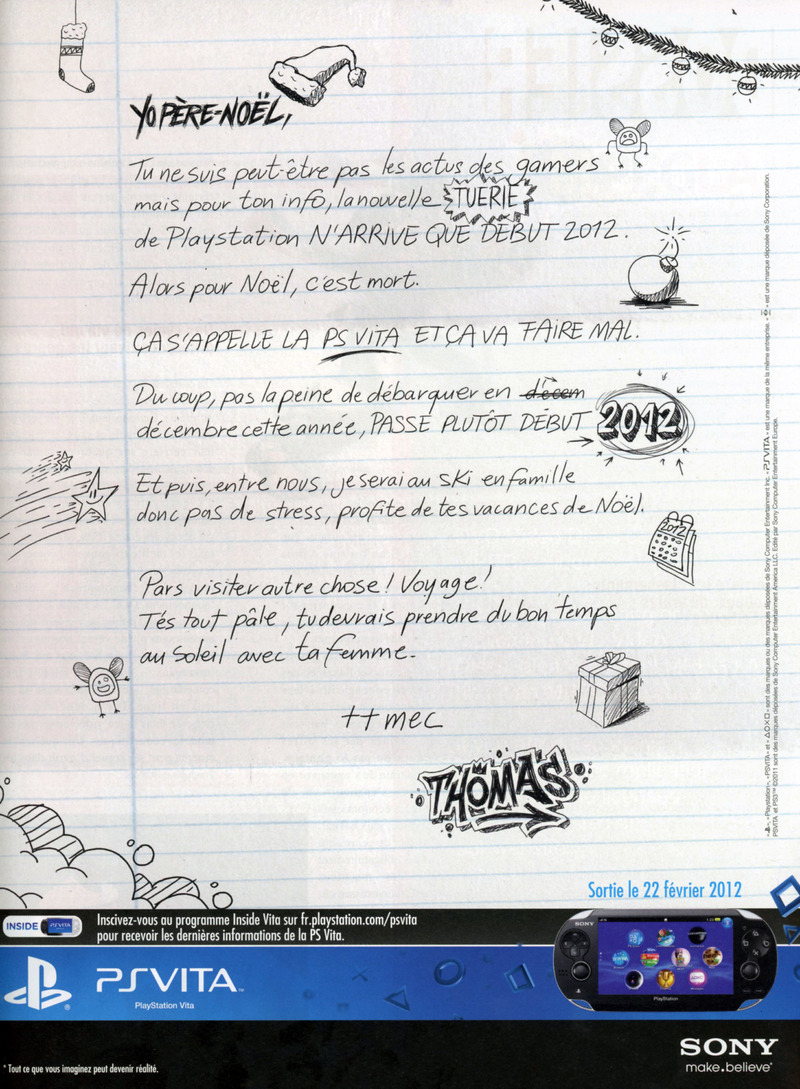 YO PÈRE-NOËL,
Tu ne suis peut-être pas les actus des gamers
mais pour ton info, la nouvelle TUERIE
de Playstation N'ARRIVE QUE DÉBUT 2012.
Alors pour Noël, c'est mort.
ÇA S'APPELLE LA PS VITA ET ÇA VA FAIRE MAL.
Du coup, pas la peine de débarquer en décem
décembre cette année, PASSE PLUTÔT DÉBUT 2012
Et puis, entre nous, je serai au ski en famille
donc pas de stress, profite de tes vacances de Noël.
2012
Pars visiter autre chose ! Voyage !
T'es tout pâle, tu devrais prendre du bon temps
au soleil avec ta femme.
++ mec
THOMAS
Sortie le 22 février 2012
INSIDE PSVITA
Inscivez-vous au programme Inside Vita sur fr.playstation.com/psvita
pour recevoir les dernières informations de la PS Vita.
PSVITA™
PlayStation Vita
SONY
PlayStation
SONY
make.believe*
* Tout ce que vous imaginez peut devenir réalité.
« PlayStation », « PSVITA » et « △○✕□ » sont des marques ou des marques déposées de Sony Computer Entertainment Inc. « PSVITA » est une marque de la même entreprise. « » est une marque déposée de Sony Corporation.
PSVITA et PS3™ ©2011 sont des marques déposées de Sony Computer Entertainment America LLC. Edité par Sony Computer Entertainment Europe.